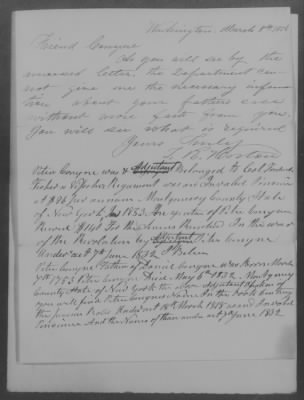 Washington, March 8th 1856
Friend Conyne
As you will see by the
annexed letter, the Department can
not give me the necessary informa
tion about your fathers case
without more facts from you.
You will see what is required
Yours truly
Peter Conyne was a Adjutant Belonged to Col
Fisher &amp; Visscher Regament was an Invalid Pensioner
at $96 per annum Montgomery County State
of New York,
For his Services Rendered In the war
of the Revolution by Adjutant Peter Conyne
Under act 7th June 1832
Peter Conyne Father of Daniel Conyne was Born March
Peter Conyne Died May 6th 1832 Montgomery
County State of New York the above Adjutant
you will find Peter Conynes Name In the Book
the pension Rools Under act 18th March 1818 and Invalid
Pensioner And the Names of them under act 7th June 1832